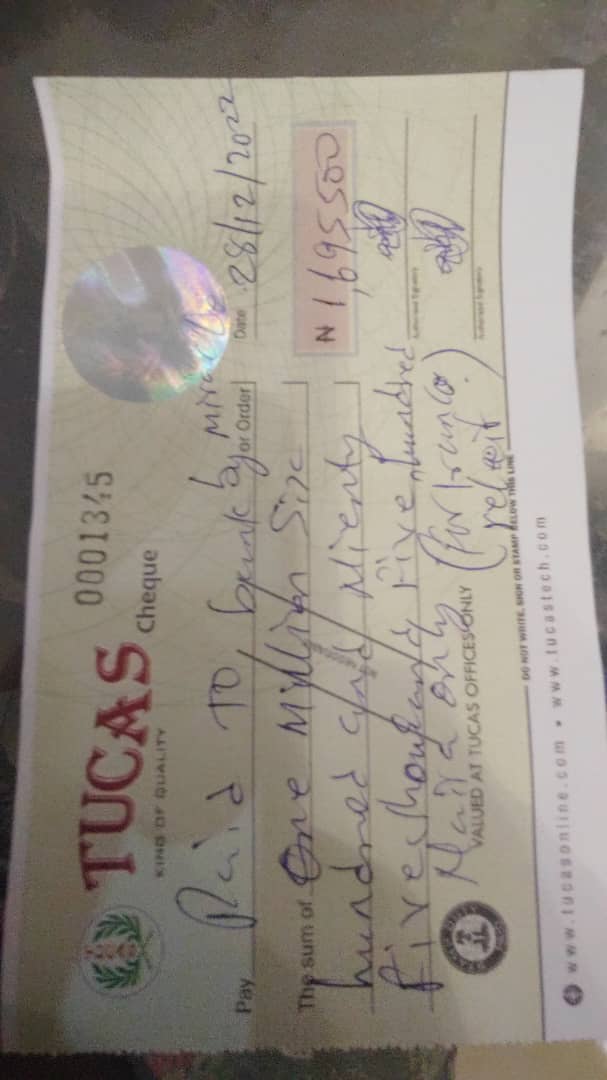 TUCAS
KING OF QUALITY
Cheque
0001345
Date 28/12/2022
Pay Paid TO bank by miracle or Order
The sum of One Million Six
hundred and Ninenty
five thousand Five hundred
Naira only (for franco
refwit.)
N 1,695500
Authorised Signatory
Authorised Signatory
VALUED AT TUCAS OFFICES ONLY
DO NOT WRITE, SIGN OR STAMP BELOW THIS LINE
www.tucasonline.com • www.tucastech.com